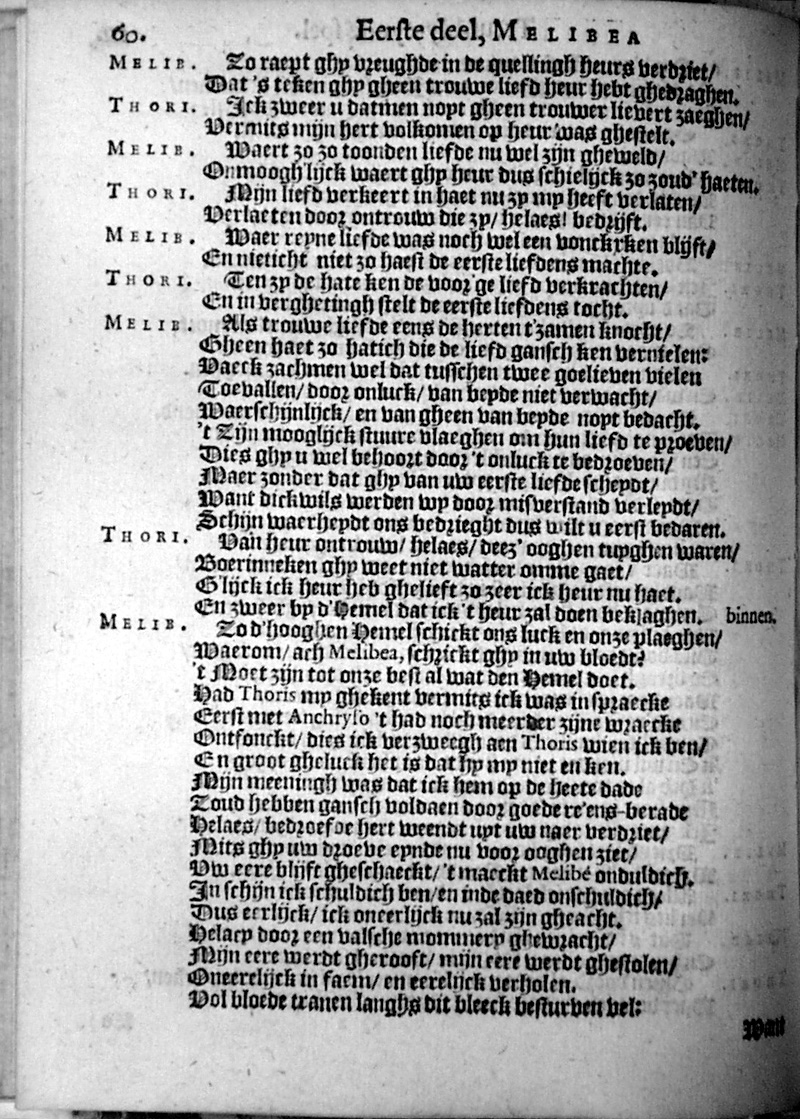 60. Eerste deel, MELIBEA
MELIB. Zo raept ghy vreughde in de quellingh heurs verdriet/
Dat 's teken ghy gheen trouwe liefd heur hebt ghedraghen.
THORI. Ick zweer u datmen noyt gheen trouwer lievert zaeghen/
Vermits mijn hert volkomen op heur was ghestelt.
MELIB. Waert zo zo toonden liefde nu wel zijn gheweld/
Onmoogh'lijck waert ghy heur dus schielijck zo zoud' haeten.
THORI. Mijn liefd verkeert in haet nu zy my heeft verlaten/
Verlaeten door ontrouw die zy/ helaes! bedrijft.
MELIB. Waer reyne liefde was noch wel een vonckrken blijft/
En nieticht niet zo haest de eerste liefdens machte.
THORI. Ten zy de hate ken de voor'ge liefd verkrachten/
En in verghetingh stelt de eerste liefdens tocht.
MELIB. Als trouwe liefde eens de herten t'zamen knocht/
Gheen haet zo hatich die de liefd gansch ken vernielen:
Vaeck zachmen wel dat tusschen twee goelieven vielen
Toevallen/ door onluck/ van beyde niet verwacht/
Waerschijnlijck/ en van gheen van beyde noyt bedacht.
't Zijn mooglijck stuure vlaeghen om hun liefd te proeven/
Dies ghy u wel behoort door 't onluck te bedroeven/
Maer zonder dat ghy van uw eerste liefde scheydt/
Want dickwils werden wy door misverstand verleydt/
Schijn waerheydt ons bedrieght dus wilt u eerst bedaren.
THORI. Van heur ontrouw/ helaes/ deez' ooghen tuyghen waren/
Boerinneken ghy weet niet watter omme gaet/
G'lijck ick heur heb ghelieft zo zeer ick heur nu haet.
En zweer by d'Hemel dat ick 't heur zal doen beklaghen. binnen.
MELIB. Zo d'hooghen Hemel schickt ons luck en onze plaeghen/
Waerom/ ach Melibea, schrickt ghy in uw bloedt?
't Moet zijn tot onze best al wat den Hemel doet.
Had Thoris my ghekent vermits ick was in spraecke
Eerst met Anchryso 't had noch meerder zijne wraecke
Ontfonckt/ dies ick verzweegh aen Thoris wien ick ben/
En groot gheluck het is dat hy my niet en ken.
Mijn meeningh was dat ick hem op de heete dade
Zoud hebben gansch voldaen door goede re'ens-berade
Helaes/ bedroefde hert weendt uyt uw naer verdriet/
Mits ghy uw droeve eynde nu voor ooghen ziet/
Uw eere blijft gheschaeckt/ 't maeckt Melibé onduldich.
In schijn ick schuldich ben/ en inde daed onschuldich/
Dus eerlijck/ ick oneerlijck nu zal zijn gheacht.
Helacy door een valsche mommery ghewracht/
Mijn eere werdt gherooft/ mijn eere werdt ghestolen/
Oneerelijck in faem/ en eerelijck verholen.
Vol bloede tranen langhs dit bleeck besturven vel:
Want